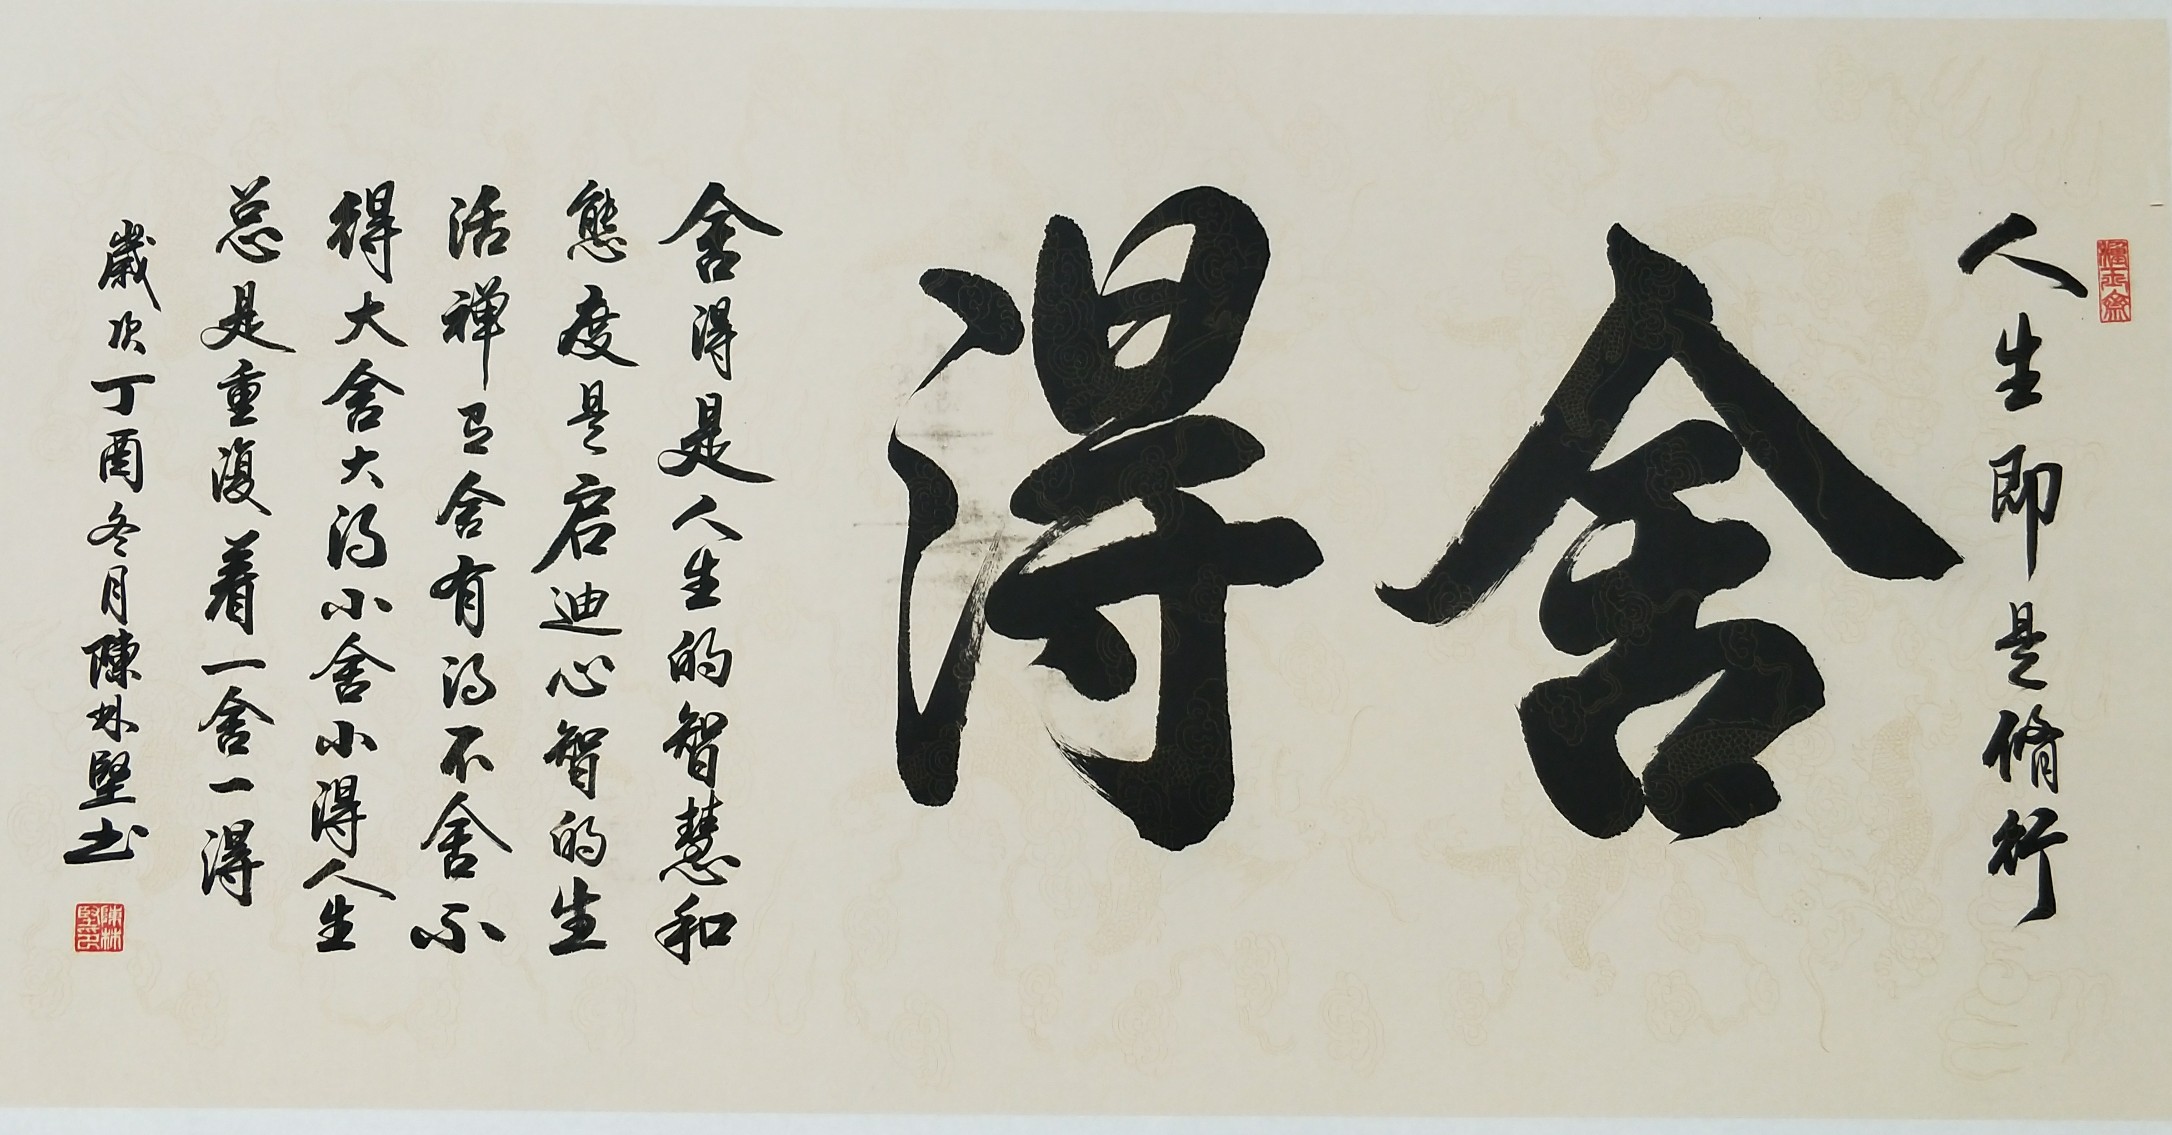 人生即是脩行
舍得
舍得是人生的智慧和
態度是启迪心智的生
活禅只舍有得不舍不
得大舍大得小舍小得人生
总是重復着一舍一得
歲次丁酉冬月陳林堅书
陳林堅印